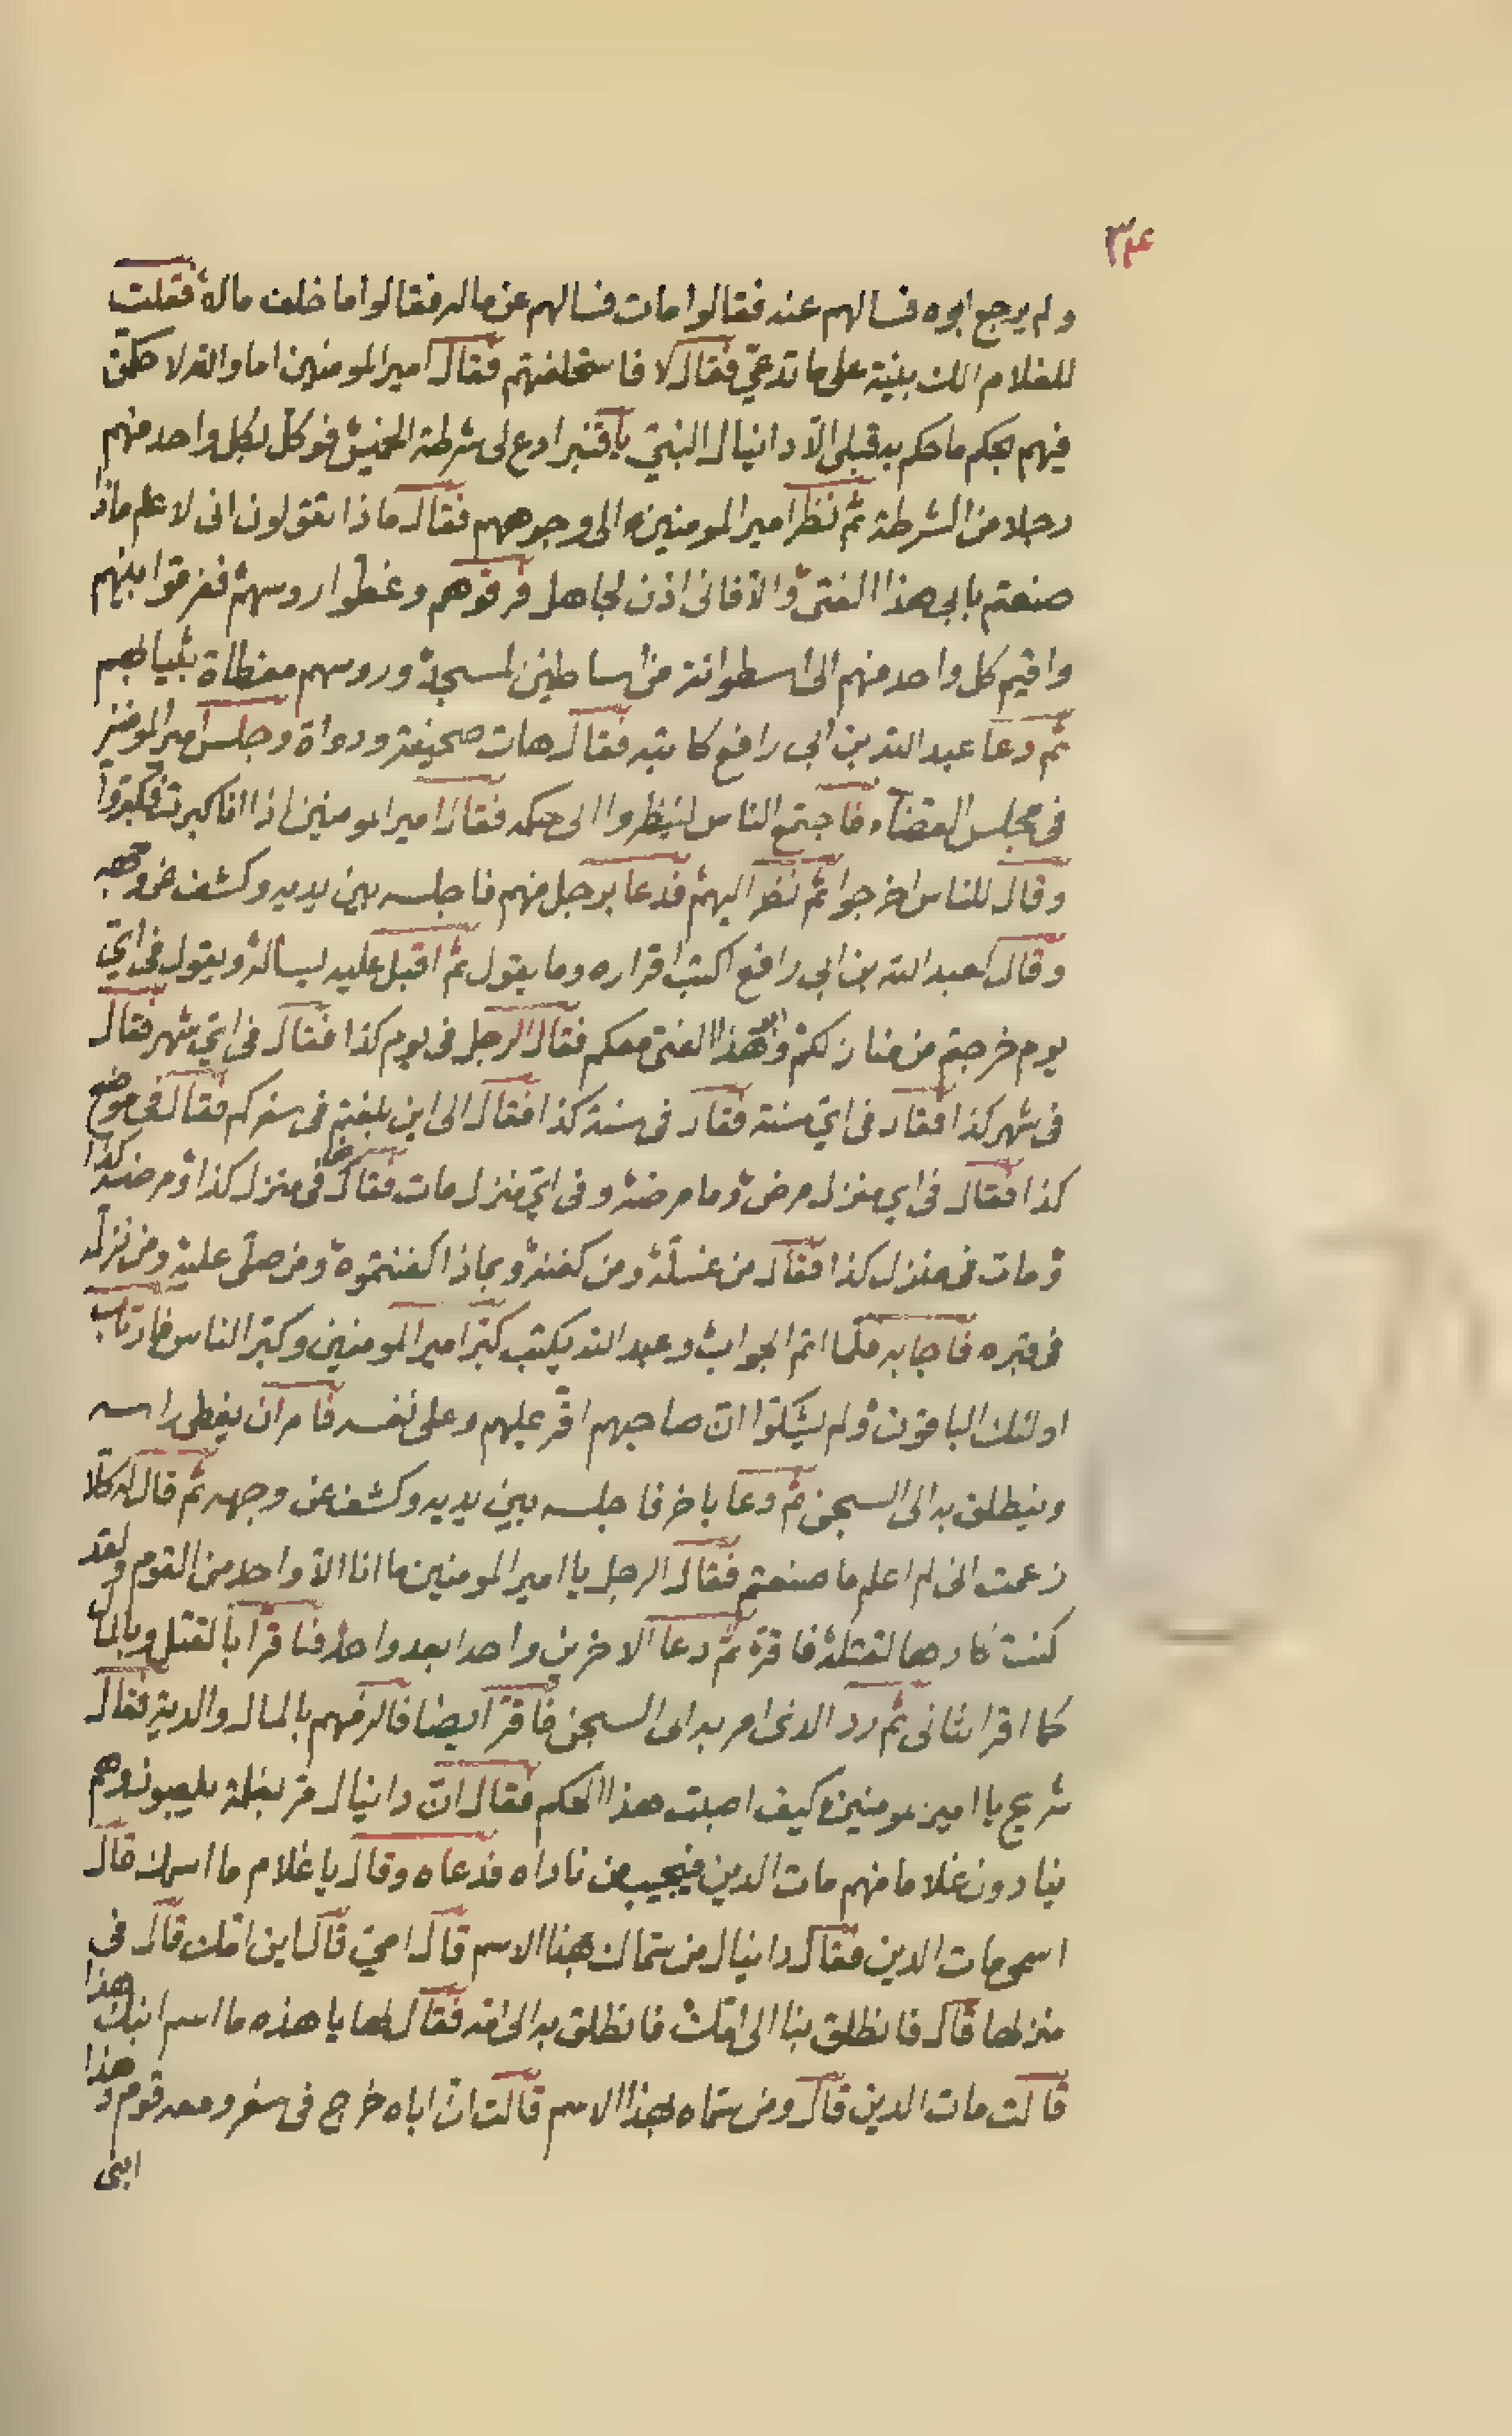 ٣٤
ولم يرجع ابوه فسالهم عنه فقالوا مات فسالهم عن ماله فقالوا ما خلف مالا فقلت
للغلام الك بينة على ما تدعي فقال لا فاستحلفتهم فقال امير المومنين اما والله لاحكمن
فيهم بحكم ما حكم به قبلي الا دانيال النبي يا قنبر ادع لي شرطة الخميس فوكل بكل واحد منهم
رجلا من الشرطة ثم نظر امير المومنين الى وجوههم فقال ماذا تقولون اني لا علم ماذا
صنعتم بابي هذا الفتى والا فاني اذن لجاهل فرقوهم وغطوا روسهم ففرقوا بينهم
واقيم كل واحد منهم الى اسطوانة من اساطين المسجد وروسهم مغطاة بثيابهم
ثم دعا عبد الله بن ابي رافع كاتبه فقال هات صحيفة ودواة وجلس امير المومنين
في مجلس القضاء فاجتمع الناس لينظروا الى حكمه فقال امير المومنين اذا انا كبرت فكبروا
وقال للناس اخرجوا ثم نظر اليهم فدعا برجل منهم فاجلسه بين يديه وكشف عن وجهه
وقال لعبد الله بن ابي رافع اكتب اقراره وما يقول ثم اقبل عليه ليساله ويقول في اي
يوم خرجتم من منازلكم وابو هذا الفتى معكم فقال الرجل في يوم كذا فقال في اي شهر فقال
في شهر كذا فقال في اي سنة فقال في سنة كذا فقال الى اين بلغتم في سفركم فقال في موضع
كذا فقال في اي منزل مرض وما مرضه وفي اي منزل مات فقال في منزل كذا ومرضه كذا
ومات في منزل كذا فقال من غسله ومن كفنه وبماذا كفنتموه ومن صلى عليه ومن نزل
في قبره فاجابه فلما اتم الجواب وعبد الله يكتب كبر امير المومنين وكبر الناس فارتاب
اولئك الباقون ولم يشكوا ان صاحبهم اقر عليهم وعلى نفسه فامر ان يغطى راسه
وينطلق به الى السجن ثم دعا باخر فاجلسه بين يديه وكشف عن وجهه ثم قال له كلا
زعمت اني لم اعلم ما صنعتم فقال الرجل يا امير المومنين ما انا الا واحد من القوم ولقد
كنت كارها لقتله فاقره ثم دعا الاخرين واحدا بعد واحد فنا قرا بالقتل وبالمال
كما اقر الثاني ثم رد الذي امر به الى السجن فاقر ايضا فالزمهم بالمال والدية فقال
شريح يا امير المومنين وكيف اصبت هذا الحكم فقال ان دانيال مر بغلمة يلعبون وهم
ينادون غلاما منهم مات الدين فيجيب من ناداه فدعاه وقال يا غلام ما اسمك قال
اسمي مات الدين فقال دانيال من سماك بهذا الاسم قال امي قال اين امك قال في
منزلها قال فانطلق بنا الى امك فانطلق به الى امه فقال لها يا هذه ما اسم ابنك هذا
قالت مات الدين قال ومن سماه بهذا الاسم قالت ان اباه خرج في سفر ومعه قوم وهذا
ابني